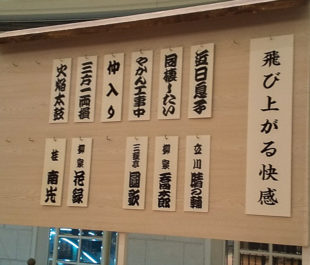 飛び上がる快感
近日息子
同棲したい
やかん工事中
仲入り
三方一両損
火焔太鼓
立川 晴の輔
柳家 喬太郎
三遊亭 圓歌
柳家 花緑